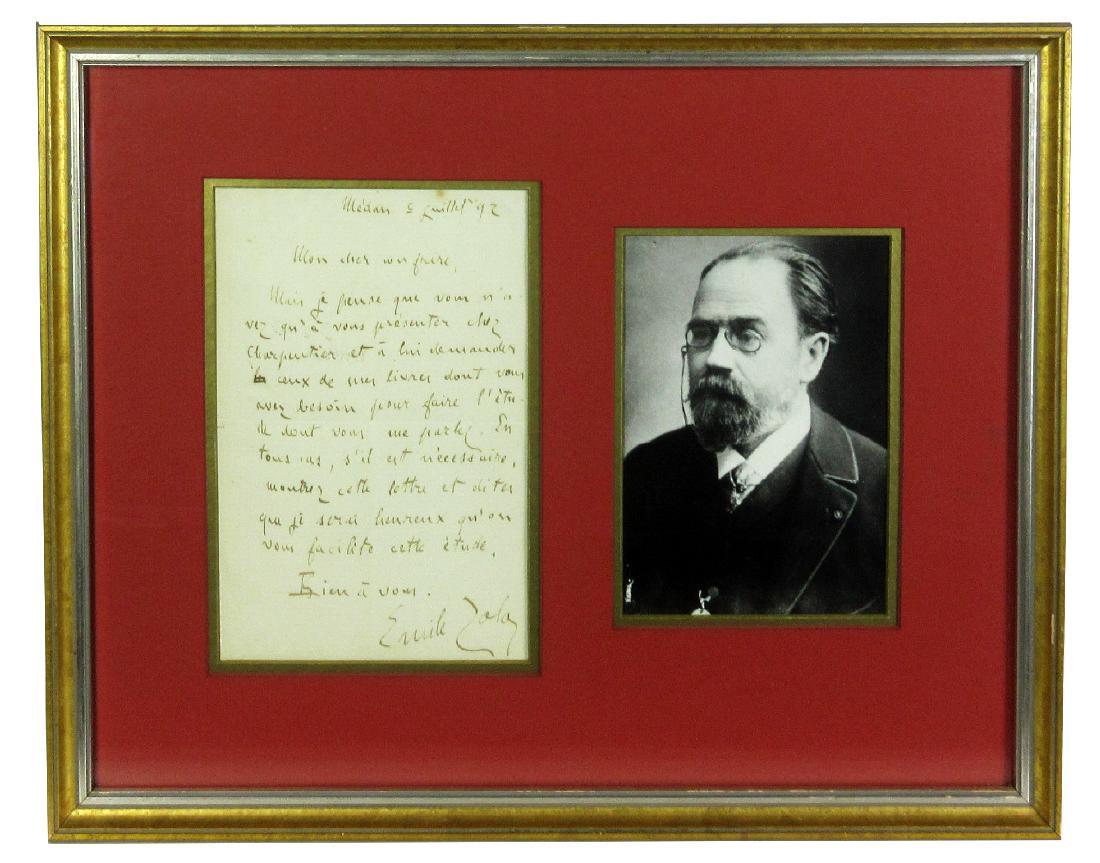 Médan 5 juillet 92
Mon cher confrère,
Mais je pense que vous n'a-
vez qu'à vous présenter chez
Charpentier et à lui demander
ceux de mes livres dont vous
avez besoin pour faire l'étu-
de dont vous me parlez. En
tous cas, s'il est nécessaire,
montrez cette lettre et dites
que je serai heureux qu'on
vous facilite cette étude.
Bien à vous.
Emile Zola